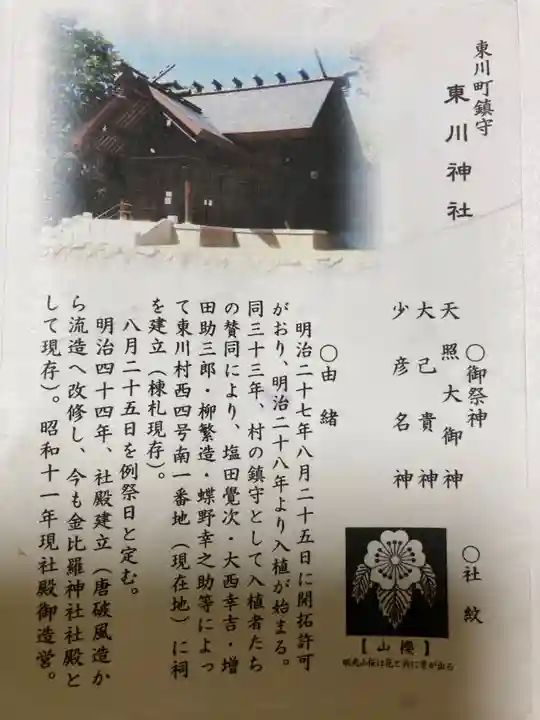 東川町鎮守
東川神社
○御祭神
天照大御神
大己貴神
少彦名神
○社紋
【山櫻】
○由緒
明治二十七年八月二十五日に開拓許可
がおり、明治二十八年より入植が始まる。
同三十三年、村の鎮守として入植者たち
の賛同により、塩田覺次・大西幸吉・増
田助三郎・柳繁造・蝶野幸之助等によっ
て東川村西四号南一番地（現在地）に祠
を建立（棟札現存）。
八月二十五日を例祭日と定む。
明治四十四年、社殿建立（唐破風造か
ら流造へ改修し、今も金比羅神社社殿と
して現存）。昭和十一年現社殿御造営。